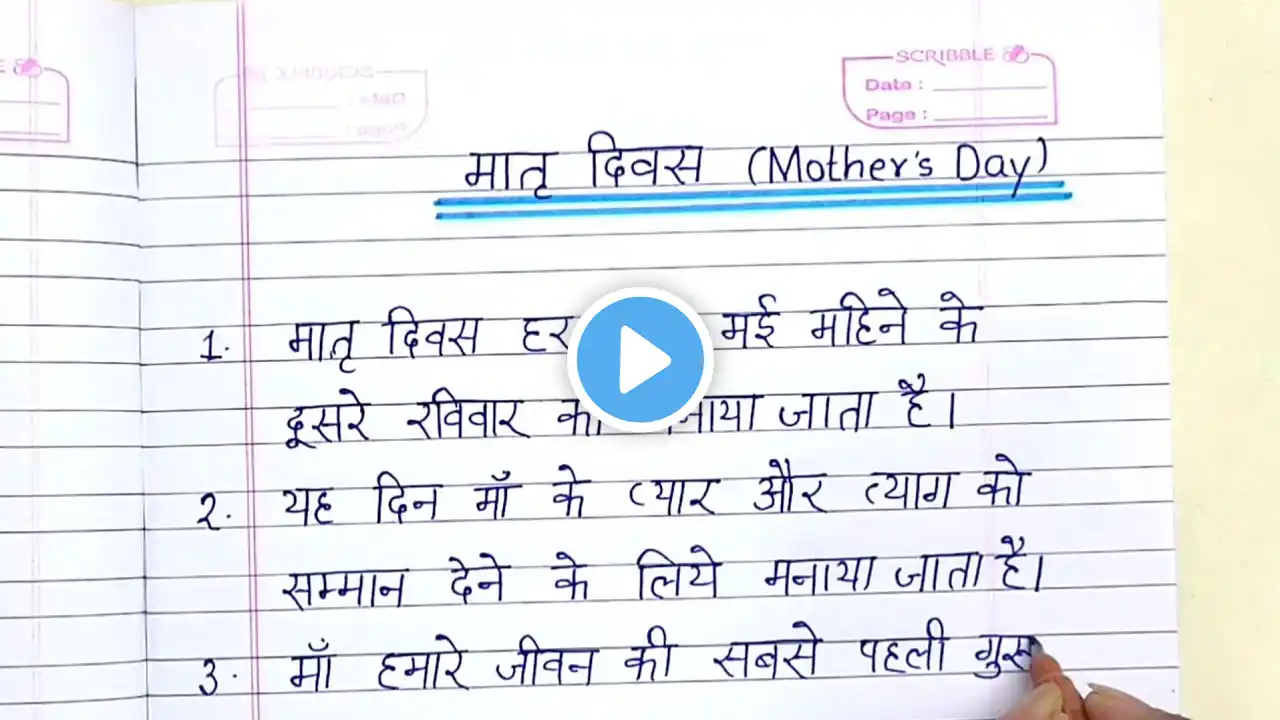 SCRIBBLE
Date :
Page :
मातृ दिवस (Mother's Day)
1. मातृ दिवस हर मई महिने के
दूसरे रविवार जाता है।
2. यह दिन माँ के प्यार और त्याग को
सम्मान देने के लिये मनाया जाता है।
3. माँ हमारे जीवन की सबसे पहली